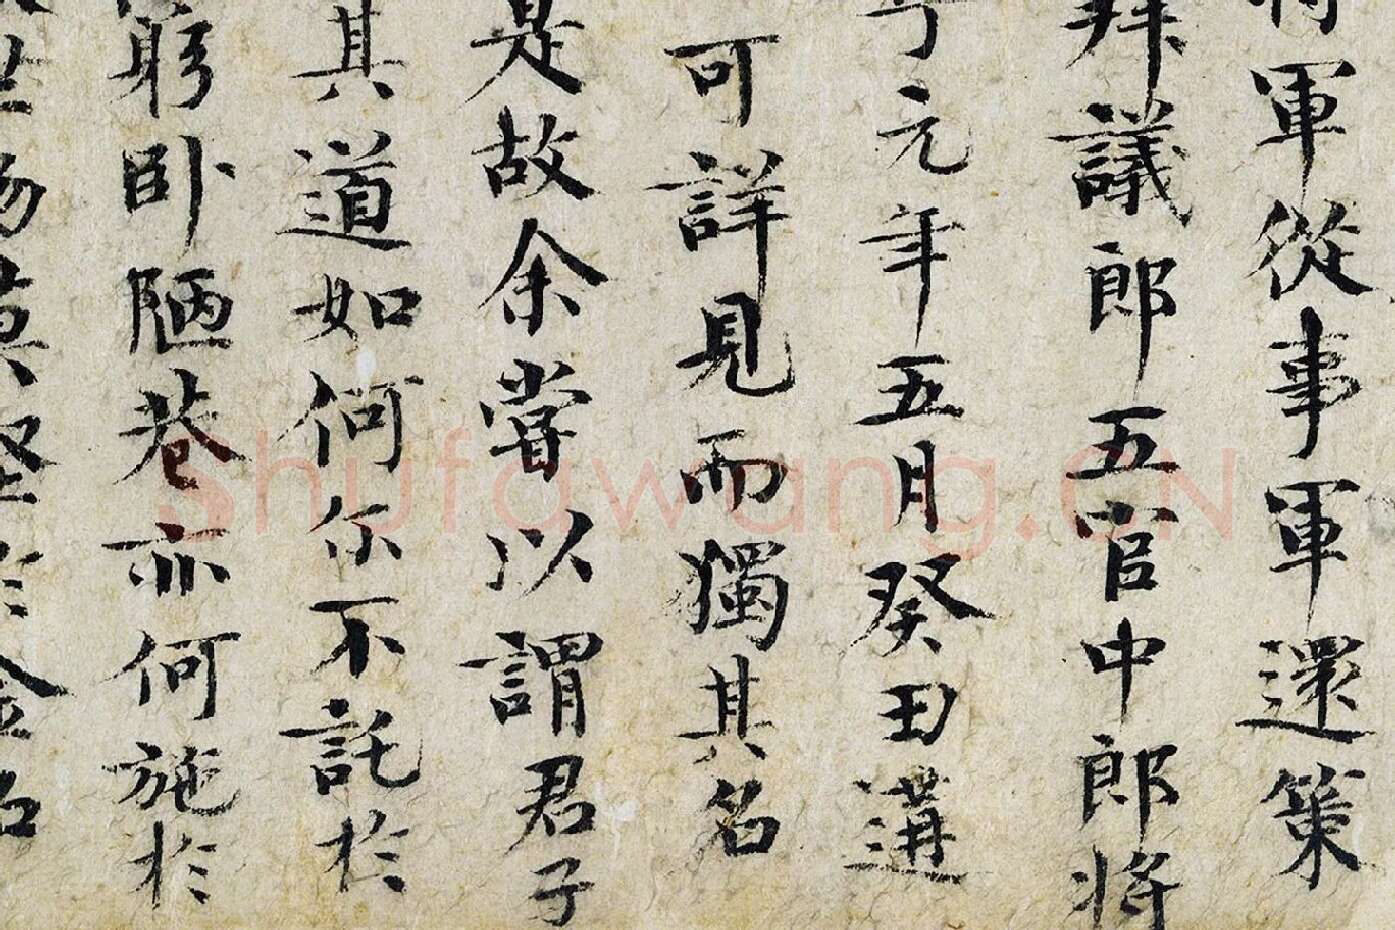 將軍從事軍還策
拜議郎五官中郎將
于元年五月癸丑遘
可詳見而獨其名
是故余嘗以謂君子
其道如何尔不託於
窮臥陋巷亦何施於
世物莫堅於金石
shufawang.CN